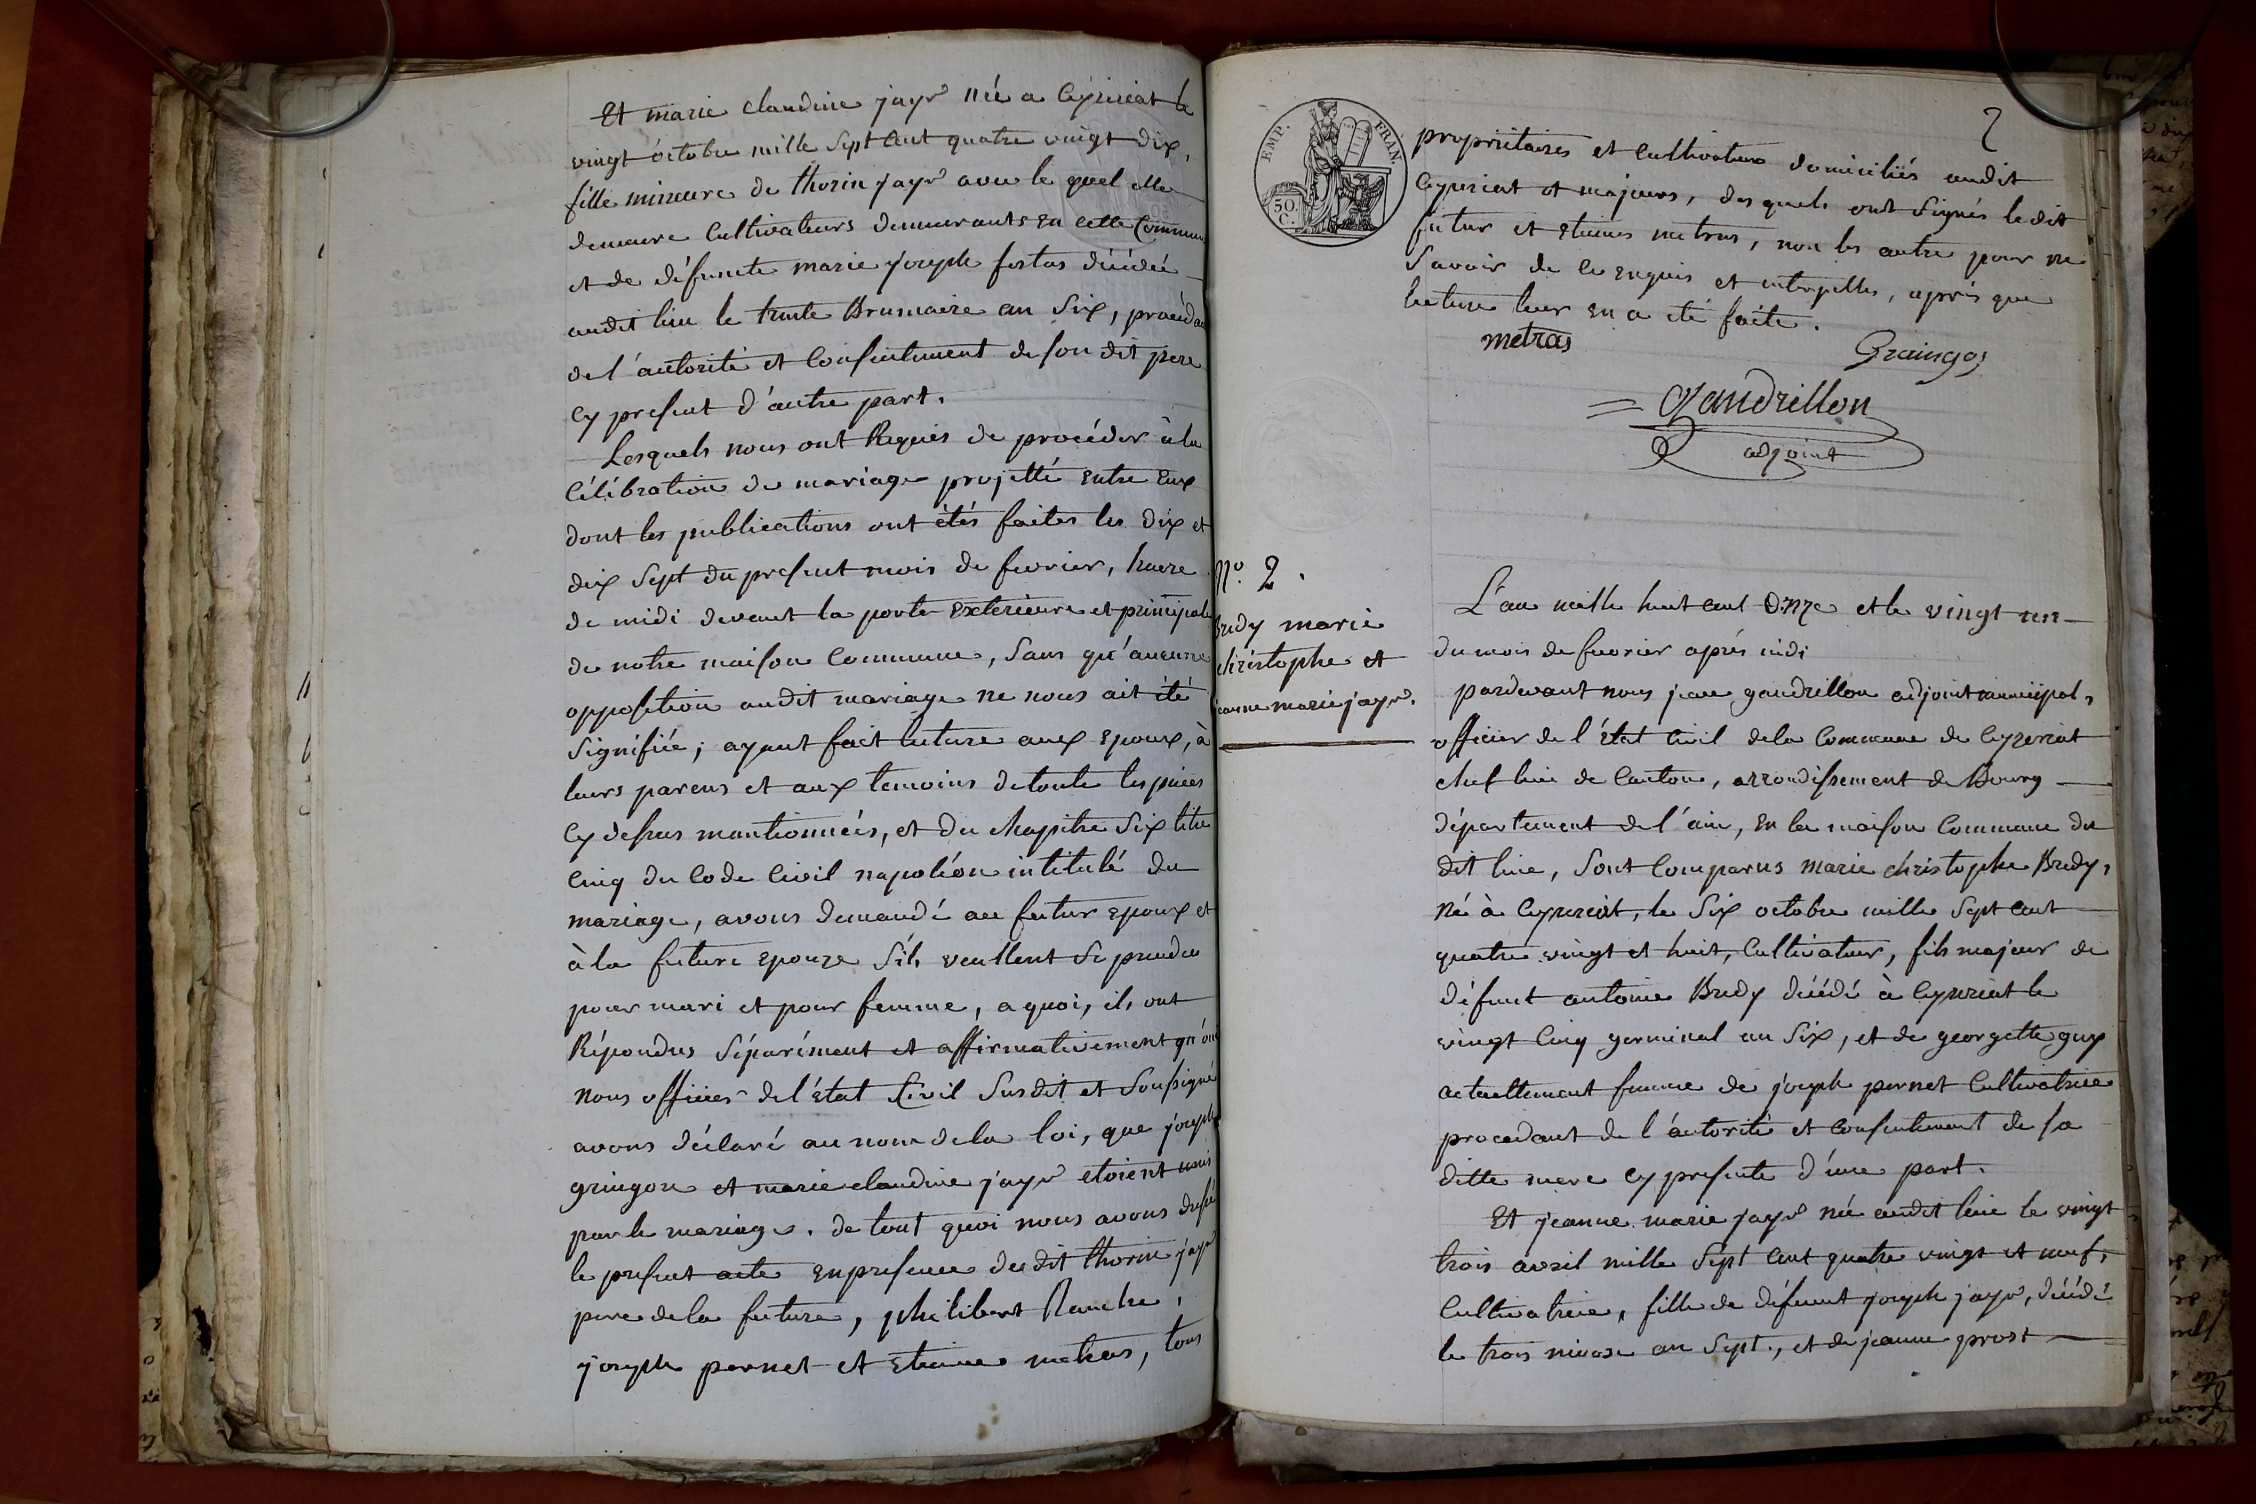 Et marie claudine jayr née a Ceyzeriat le
vingt octobre mille sept cent quatre vingt dix,
fille mineure de thorin jayr avec le quel elle
demeure Cultivateurs demeurants en cette Commune
et de défunte marie joseph fortas décédée
audit lieu le trente Brumaire an Six, procédant
de l'autorité et Consentement de son dit pere
Cy present d'autre part.
Lesquels nous ont Requis de procéder à la
Célébration du mariage projetté entre Eux
dont les publications ont étés faites les dix et
dix Sept du present mois de fevrier, heure
de midi devant la porte exterieure et principale
de notre maison Commune, Sans qu'aucune
opposition audit mariage ne nous ait été
Signifiée; ayant fait lecture aux epoux, à
leurs parens et aux temoins de toute les pieces
Cy dessus mantionnées, et du chapitre Six titre
Cinq du Code Civil napoléon intitulé du
mariage, avons demandé au futur epoux et
à la future epouze s'ils veullent se prendre
pour mari et pour femme, a quoi, ils ont
Répondus Séparément et affirmativement qu'oui
nous officier de l'état Civil Susdit et Soussigné
avons déclaré au nom de la loi, que joseph
gringon et marie claudine jayr etoient unis
par le mariage. de tout quoi nous avons dressé
le present acte en presence du dit thorin jayr
pere de la future, philibert
joseph pernet et Etienne metras, tous
2
EMP. FRAN.
50.
C.
propriétaires et Cultivateurs domiciliés audit
Ceyzeriat et majeurs, des quels ont Signés le dit
futur et etienne metras, non les autre pour ne
Savoir de ce enquis et interpellés, après que
lecture leur en a été faite.
metras
Graingos
Gandrillon
adjoint
N.o 2.
Bredy marie
christophe et
jeanne marie jayr.
L'an mille huit cent Onze et le vingt un
du mois de fevrier après midi
pardevant nous jean gandrillon adjoint municipal,
officier de l'état Civil de la Commune de Ceyzeriat
chef lieu de Canton, arrondissement de Bourg
département de l'ain, en la maison Commune du
dit lieu, Sont Comparus marie christophe Bredy,
Né à Ceyzeriat, le Six octobre mille Sept cent
quatre vingt et huit, Cultivateur, fils majeur de
défunt antoine Bredy décédé à Ceyzeriat le
vingt Cinq germinal an Six, et de georgette guy
actuellement femme de joseph pernet Cultivatrice
procedant de l'autorité et Consentement de sa
ditte mere Cy presente d'une part.
Et jeanne marie jayr née audit lieu le vingt
trois avril mille Sept cent quatre vingt et neuf,
Cultivatrice, fille de défunt joseph jayr, décédé
le trois nivose an Sept., et de jeanne prost